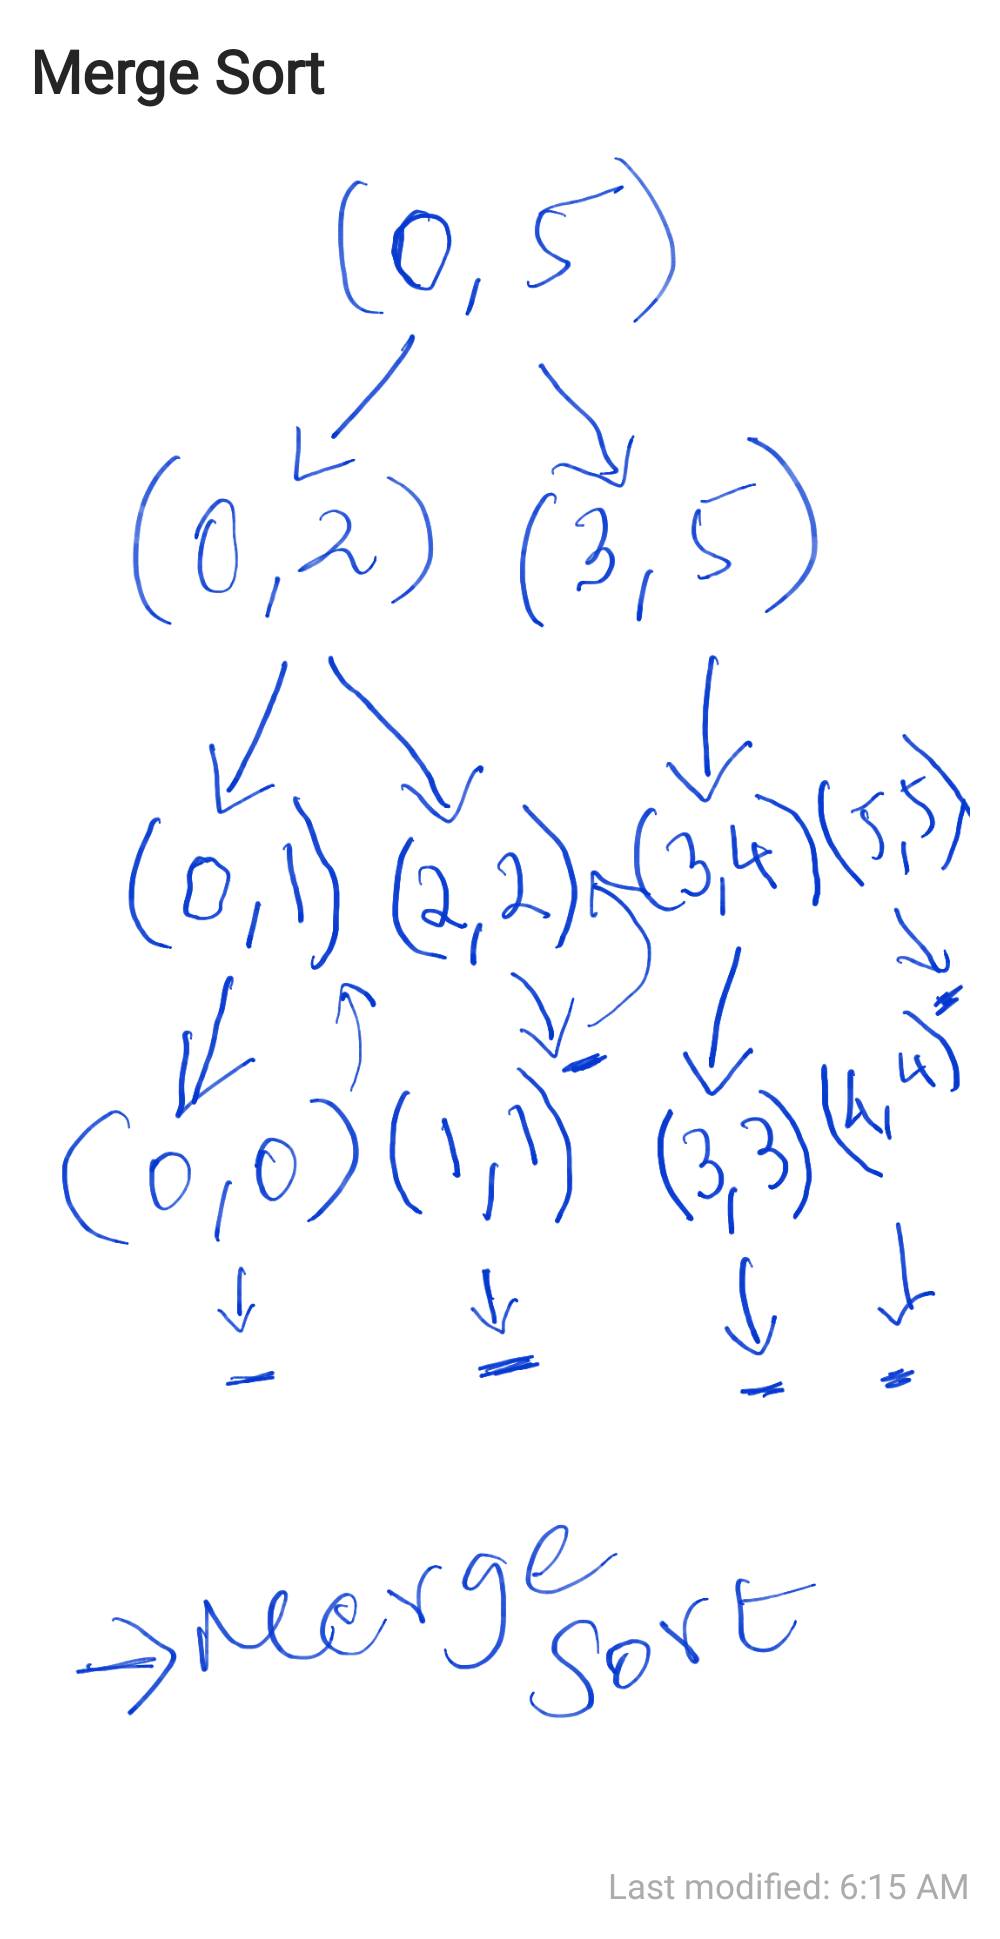 Merge Sort
(0,5)
(0,2) (3,5)
(0,1) (2,2) (3,4) (5,5)
(0,0) (1,1) (3,3) (4,4)
→Merge
Sort
Last modified: 6:15 AM